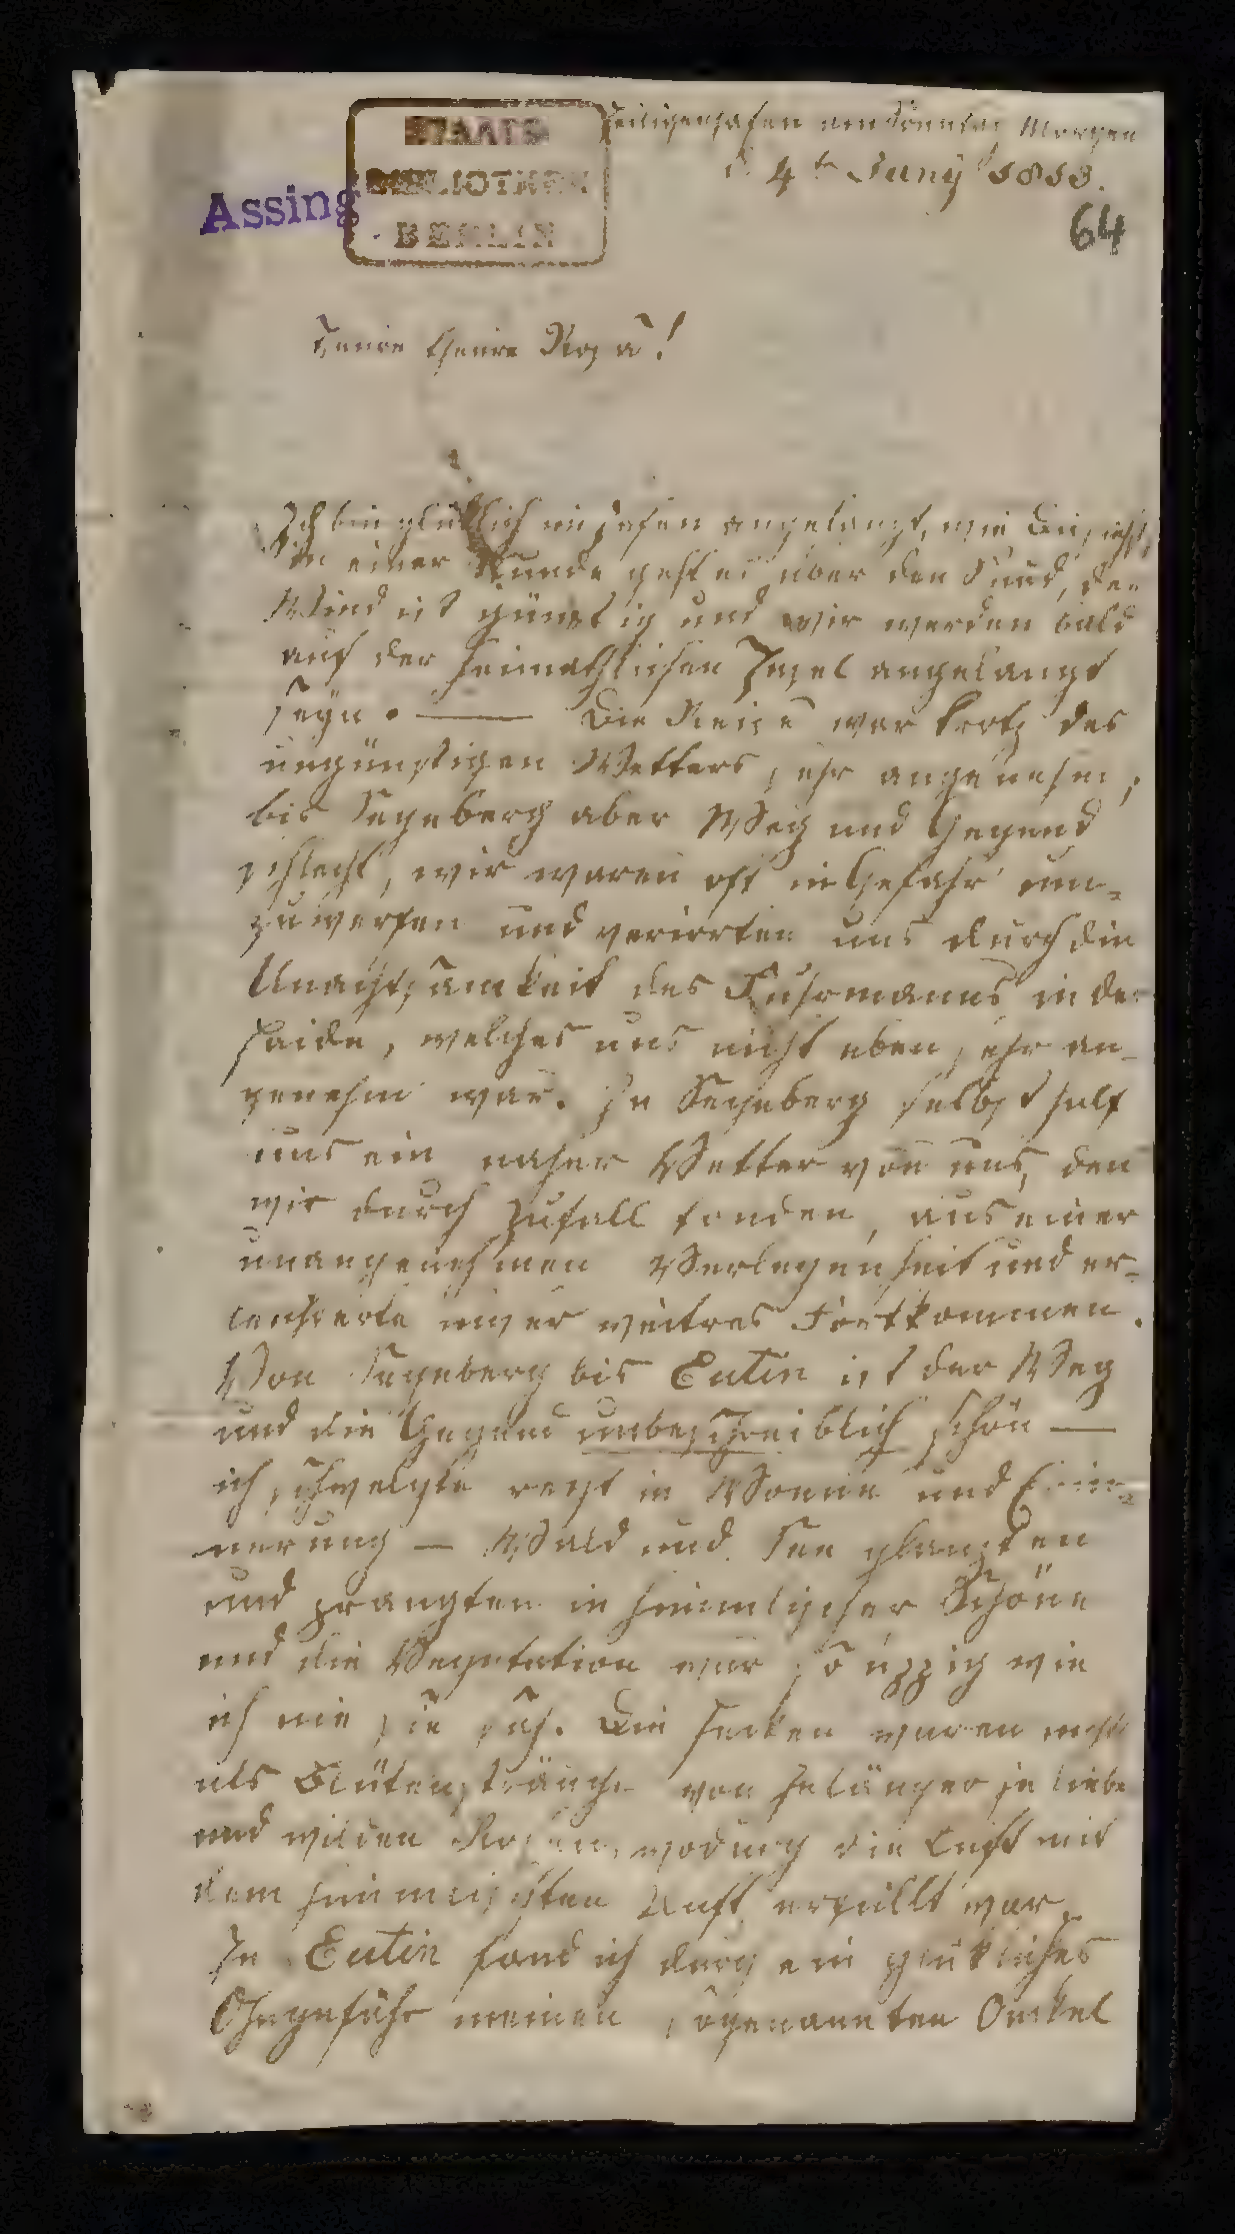 Heiligenhafen am Morgen
d 4ten Juny 1813.
STAATS
BIBLIOTHEK
BERLIN
Assing
64
Theure theure Rosa!
Ich bin glücklich im Hafen angelangt, wie Du siehst,
In einer Stunde geht es über den Sund, der
Wind ist günstig und wir werden bald
auf der heimathlichen Insel angelangt
seyn. — Die Reise war trotz des
ungünstigen Wetters sehr angenehm,
bis Segeberg aber Weg und Gegend
schlecht, wir waren oft in Gefahr um-
zuwerfen und verirrten uns durch die
Unachtsamkeit des Fuhrmanns in der
Haide, welches uns nicht eben sehr an-
genehm war. In Segeberg selbst half
uns ein naher Vetter von uns, den
wir durch Zufall fanden, aus einer
unangenehmen Verlegenheit und er-
leichterte unser weitres Fortkommen.
Von Segeberg bis Eutin ist der Weg
und die Gegend unbeschreiblich schön —
ich schwelgte recht in Wonne und Erin-
nerung — Wald und See glänzten
und prangten in himmlischer Schöne
und die Vegetation war so üppig wie
ich nie sie sah. Die Hecken waren nichts
als Blütensträuche von Jelänger je lieber
und wilden Rosen, wodurch die Luft mit
dem himmlischsten Duft erfüllt war.
In Eutin fand ich durch ein glükliches
Ohngefähr meinen sogenannten Onkel